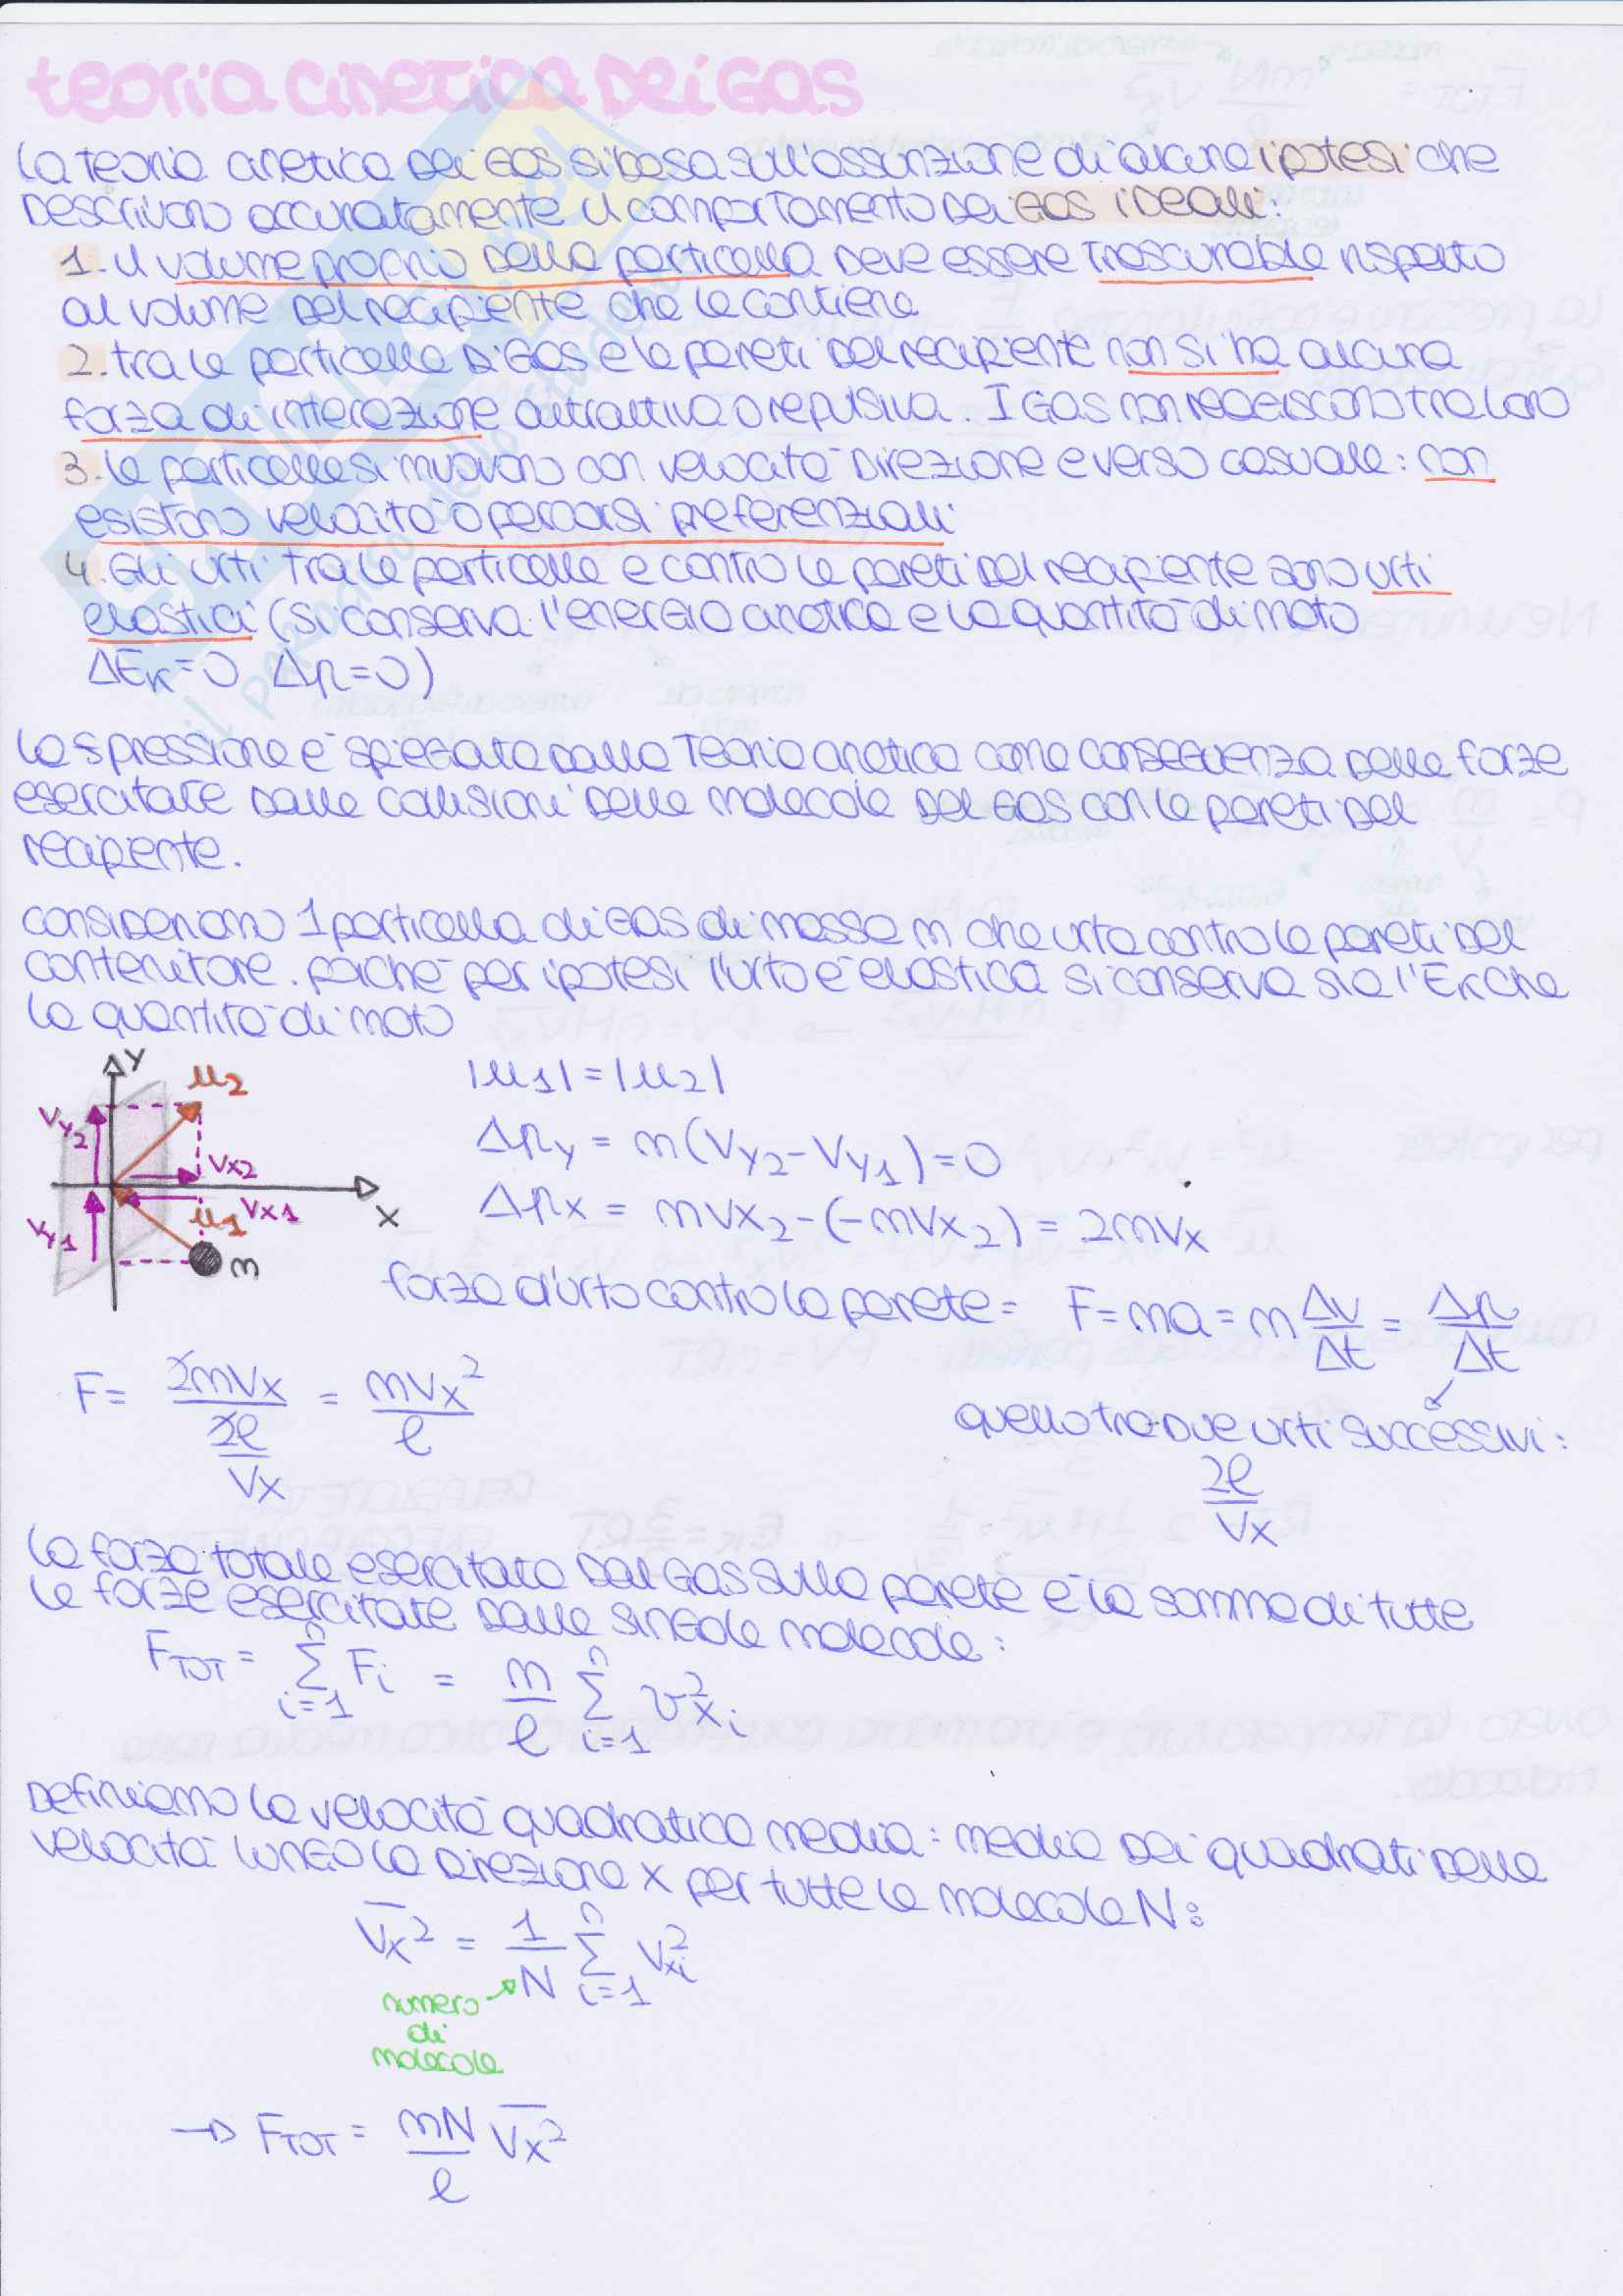 teoria cinetica Dei GAS
la teoria cinetica Dei GAS si basa sull'assunzione di alcune ipotesi che
Descrivono accuratamente il comportamento Dei GAS iDeali:
1. il volume proprio Delle particelle Deve essere Trascurabile rispetto
al volume Del recipiente che le contiene
2. tra le particelle Di GAS e le pareti Del recipiente non si ha alcuna
forza di interazione attrattiva o repulsiva. I GAS non reagiscono tra loro
3. le particelle si muovono con velocità Direzione e verso casuale: non
esistono velocità o percorsi preferenziali
4. Gli urti tra le particelle e contro le pareti Del recipiente sono urti
elastici (si conserva l'energia cinetica e la quantità di moto
ΔEk=0 Δp=0)
la pressione è spiegata Dalla Teoria cinetica come conseguenza Delle forze
esercitate Dalle collisioni Delle molecole Del GAS con le pareti Del
recipiente.
consideriamo 1 particella di GAS di massa m che urta contro le pareti Del
contenitore. poichè per ipotesi l'urto è elastico si conserva sia l'Ek che
la quantità di moto
y
μ2
Vy2
Vx2
x
μ1 Vx1
Vy1
m
|μ1| = |μ2|
Δpy = m(Vy2-Vy1)=0
Δpx = mVx2-(-mVx2) = 2mVx
forza d'urto contro la parete = F=ma = m Δv/Δt = Δp/Δt
F= 2mVx / (2l/Vx) = mVx²/l
quello tra Due urti successivi:
2l/Vx
la forza totale esercitata Dal GAS sulla parete è la somma di tutte
le forze esercitate Dalle singole molecole:
FTOT = Σ n i=1 Fi = m/l Σ n i=1 v²xi
Definiamo la velocità quadratica media: media Dei quadrati Delle
velocità lungo la Direzione x per tutte le molecole N:
V̅x² = 1/N Σ n i=1 V²xi
numero
di
molecole
→ FTOT = mN/l V̅x²